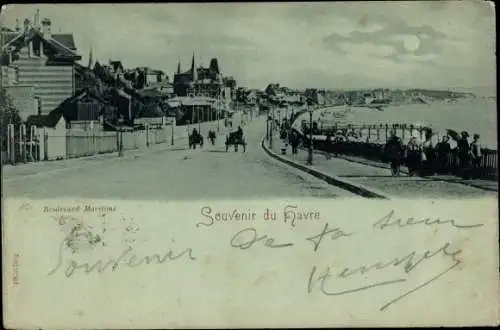 Boulevard Maritime
Souvenir du Havre
Souvenir de ta sœur